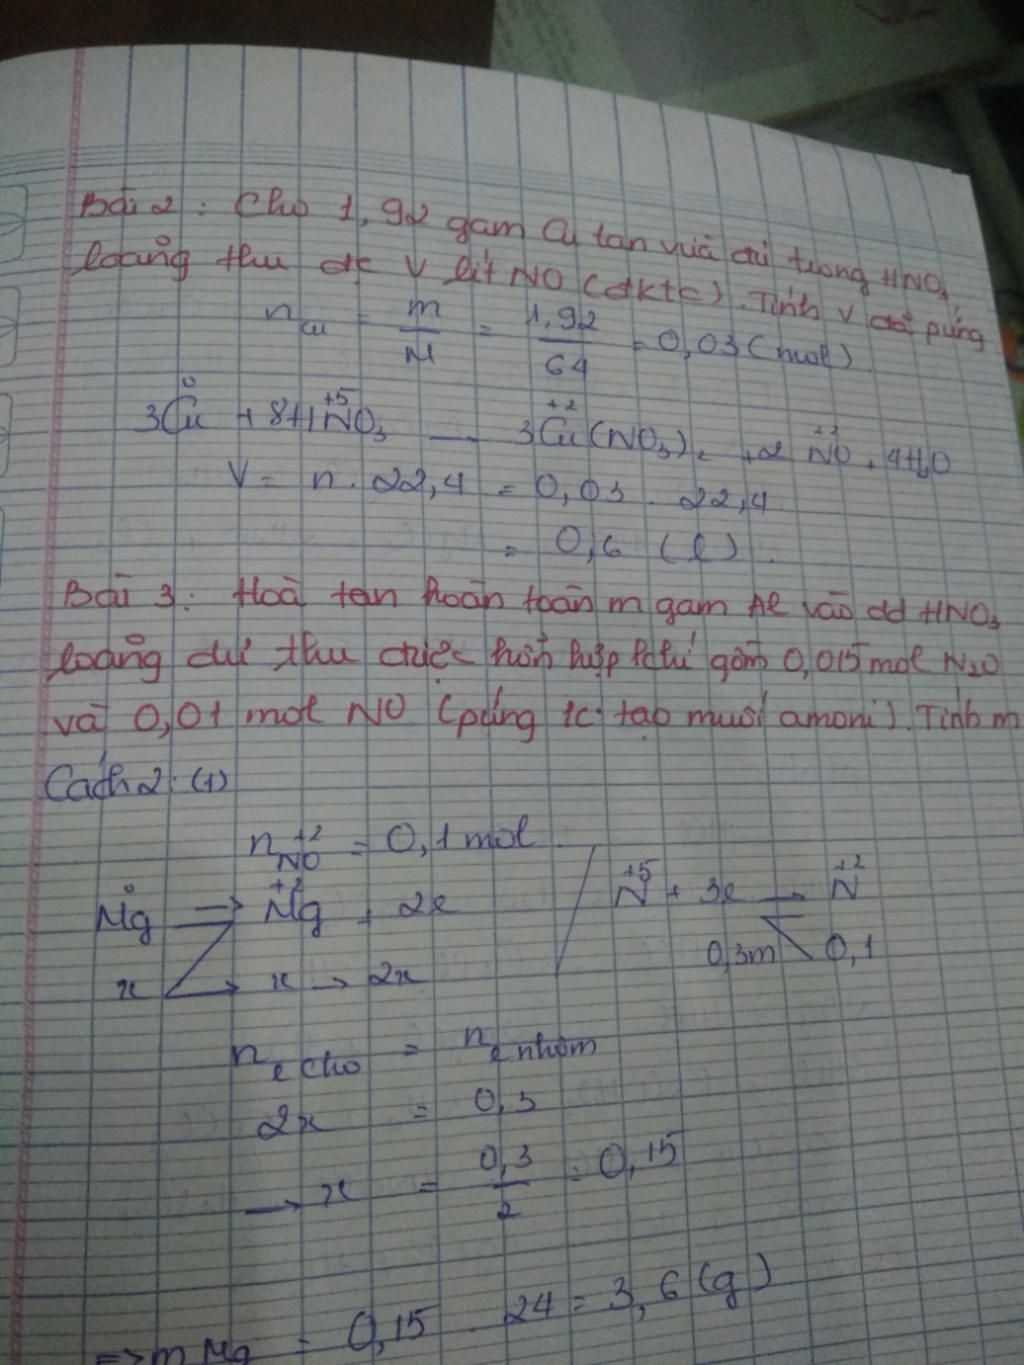 Bài 2: Cho 1,92 gam Cu tan vừa đủ trong HNO3
loãng thu đc V lít NO (đktc). Tính V đã pứng
n Cu = m/M = 1,92/64 = 0,03 (mol)
3Cu⁰ + 8HN⁺⁵O3 — 3Cu⁺²(NO3)2 + 2N⁺²O + 4H2O
V = n . 22,4 = 0,03 . 22,4
= 0,6 (l).
Bài 3: Hoà tan hoàn toàn m gam Al vào dd HNO3
loãng dư thu được hỗn hợp khí gồm 0,015 mol N2O
và 0,01 mol NO (pứng 1c tạo muối amoni). Tính m
Cách 2: (1)
n N⁺²O = 0,1 mol
Mg⁰ → Mg⁺² + 2e / N⁺⁵ + 3e → N⁺²
x → x → 2x 0,3m 0,1
n e cho = n e nhôm
2x = 0,3
→ x = 0,3/2 = 0,15
=> m Mg = 0,15 . 24 = 3,6 (g)